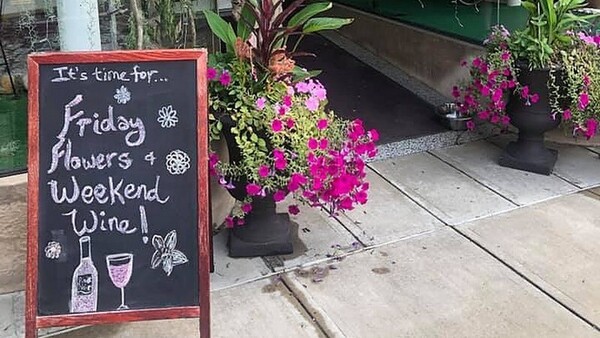 It's time for...
Friday
Flowers &
Weekend
Wine!